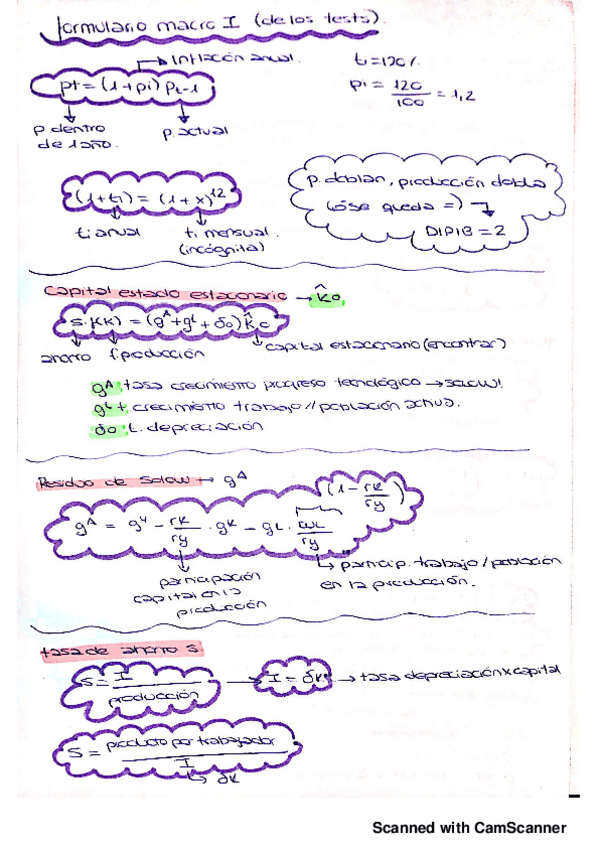 formulario macro I (de los tests).
inflación anual.
pt = (1+pi) Pt-1
ti=120%
pi = 120/100 = 1,2
p. dentro de 1 año.
p. actual
(1+ti) = (1+x)^12
ti anual
ti mensual. (incógnita)
p. doblan, producción dobla
(o se queda =)
DIPIB = 2
Capital estado estacionario → k̂o
s.f(k) = (g^A+g^L+δo) k̂o
ahorro
f. producción
capital estacionario (encontrar)
g^A: tasa crecimiento progreso tecnológico → solow!
g^L t. crecimiento trabajo // población activa.
δo: t. depreciación
Residuo de Solow → g^A
(1 - rK/ry)
g^A = g^y - rK/ry . g^K - gL . wL/ry
participación capital en la producción
particip. trabajo/población en la producción.
tasa de ahorro s
S = I/producción
I = δk → tasa depreciación x capital
S = producto por trabajador/I
δk
Scanned with CamScanner